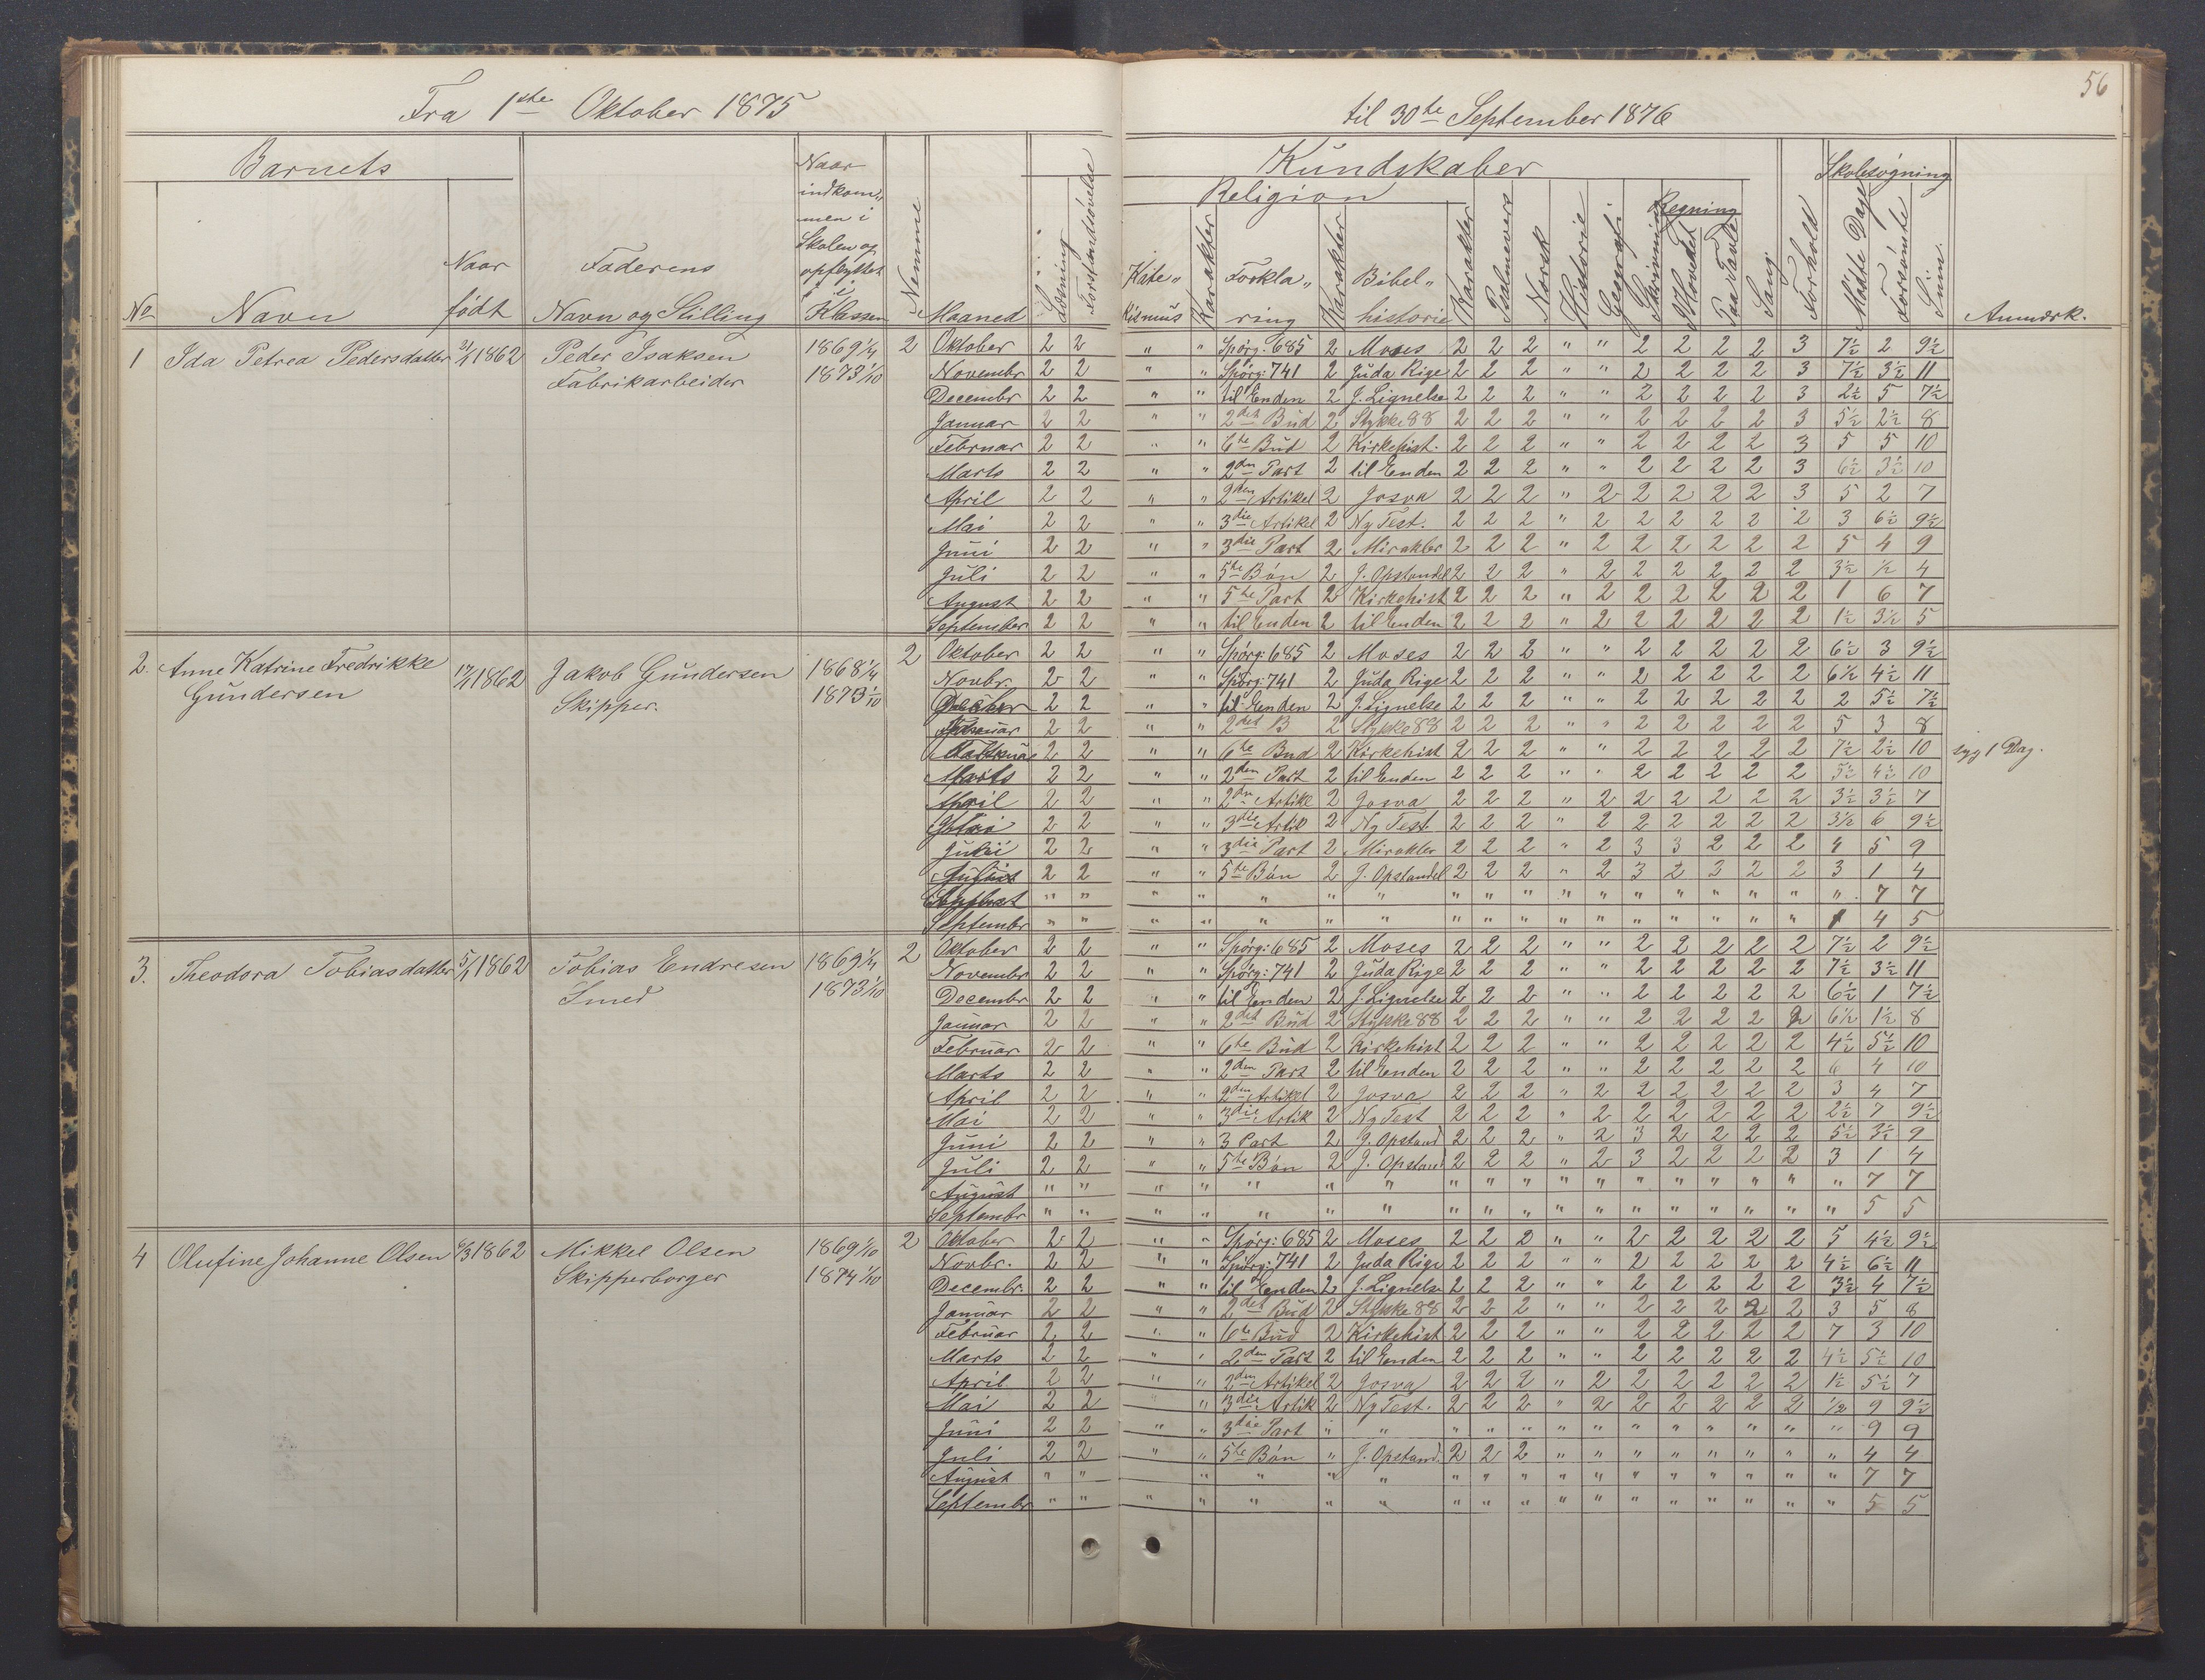 56
Fra 1ste Oktober 1875 til 30te September 1876
Barnets Kundskaber Skolesøgning
Religion Regning
No Navn Naar født Faderens Navn og Stilling Naar indkommen i Skolen og opflyttet i Klassen Nemme Maaned Læsning Forstandsøvelse Katekismus Karakter Forklaring Karakter Bibelhistorie Karakter Psalmevers Norsk Historie Geografi Skrivning I Hovedet Paa Tavle Sang Forhold Mødte Dage Forsømte Sum Anmærk.
1 Ida Petrea Pedersdatter 31/1 1862 Peder Isaksen 1869 1/4 2 Oktober 2 2 " " Spörg: 685 2 Moses 2 2 2 " " 2 2 2 2 3 7½ 2 9½
Fabrikarbeider 1873 1/10 Novembr 2 2 " " Spörg: 741 2 Juda Rige 2 2 2 " " 2 2 2 2 3 7½ 3½ 11
Decembr 2 2 " " til Enden 2 J. Lignelse 2 2 2 " " 2 2 2 2 3 2½ 5 7½
Januar 2 2 " " 2det Bud 2 Stykke 88 2 2 2 " " 2 2 2 2 3 5½ 2½ 8
Februar 2 2 " " 6te Bud 2 Kirkehist. 2 2 2 " " 2 2 2 2 3 5 5 10
Marts 2 2 " " 2den Part 2 til Enden 2 2 2 " " 2 2 2 2 3 6½ 3½ 10
April 2 2 " " 2den Artikel 2 Josva 2 2 2 " 2 2 2 2 2 3 5 2 7
Mai 2 2 " " 3die Artikel 2 Ny Test. 2 2 2 " 2 2 2 2 2 2 3 6½ 9½
Juni 2 2 " " 3die Part 2 Mirakler 2 2 2 " 2 2 2 2 2 2 5 4 9
Juli 2 2 " " 5te Bön 2 J. Opstandel 2 2 2 " 2 2 2 2 2 2 3½ ½ 4
August 2 2 " " 5te Part 2 Kirkehist 2 2 2 " 2 2 2 2 2 2 1 6 7
September 2 2 " " til Enden 2 til Enden 2 2 2 " 2 2 2 2 2 2 1½ 3½ 5
2. Anne Katrine Fredrikke 1862 Jakob Gundersen 1868 1/4 2 Oktober 2 2 " " Spörg: 685 2 Moses 2 2 2 " " 2 2 2 2 2 6½ 3 9½
Gundersen Skipper. 1873 1/10 Novbr. 2 2 " " Spörg: 741 2 Juda Rige 2 2 2 " " 2 2 2 2 2 6½ 4½ 11
2 2 " " til Enden 2 J. Lignelse 2 2 2 " " 2 2 2 2 2 2 5½ 7½
2 2 " " 2det B 2 Stykke 88 2 2 2 " " 2 2 2 2 2 5 3 8
2 2 " " 6te Bud 2 Kirkehist 2 2 2 " " 2 2 2 2 2 7½ 2½ 10 syg 1 Dag.
Marts 2 2 " " 2den Part 2 til Enden 2 2 2 " " 2 2 2 2 2 5½ 4½ 10
April 2 2 " " 2den Artikl 2 Josva 2 2 2 " 2 2 2 2 2 2 3½ 3½ 7
Mai 2 2 " " 3die Artik 2 Ny Test. 2 2 2 " 2 2 2 2 2 2 3½ 6 9½
2 2 " " 3die Part 2 Mirakler 2 2 2 " 2 3 3 2 2 2 4 5 9
2 2 " " 5te Bön 2 J. Opstandel 2 2 2 " 2 3 2 3 2 2 3 1 4
" " " " " " " " " " " " " " " " " " 7 7
Septembr " " " " " " " " " " " " " " " " " 4 5
3. Theodora Tobiasdatter 5/1 1862 Tobias Endresen 1869 1/4 2 Oktober 2 2 " " Spörg: 685 2 Moses 2 2 2 " " 2 2 2 2 2 7½ 2 9½
Smed 1873 1/10 Novembr 2 2 " " Spörg: 741 2 Juda Rige 2 2 2 " " 2 2 2 2 2 7½ 3½ 11
Decembr 2 2 " " til Enden 2 J. Lignelse 2 2 2 " " 2 2 2 2 2 6½ 1 7½
Januar 2 2 " " 2det Bud 2 Stykke 88 2 2 2 " " 2 2 2 2 2 6½ 1½ 8
Februar 2 2 " " 6te Bud 2 Kirkehist 2 2 2 " " 2 2 2 2 2 4½ 5½ 10
Marts 2 2 " " 2den Part 2 til Enden 2 2 2 " " 2 2 2 2 2 6 4 10
April 2 2 " " 2den Artikel 2 Josva 2 2 2 " 2 2 2 2 2 2 3 4 7
Mai 2 2 " " 3die Artik 2 Ny Test 2 2 2 " 2 2 2 2 2 2 2½ 7 9½
Juni 2 2 " " 3 Part 2 J. Opstand 2 2 2 " 2 3 2 2 2 2 5½ 3½ 9
Juli 2 2 " " 5te Bön 2 J. Opstand 2 2 2 " 2 3 2 2 2 2 3 1 4
August " " " " " " " " " " " " " " " " " " 7 7
Septembr " " " " " " " " " " " " " " " " " 5 5
4 Olufine Johanne Olsen 6/3 1862 Mikkel Olsen 1869 1/10 2 Oktober 2 2 " " Spörg: 685 2 Moses 2 2 2 " " 2 2 2 2 2 5 4½ 9½
Skipperborger 1874 1/10 Novbr. 2 2 " " Spörg: 741 2 Juda Rige 2 2 2 " " 2 2 2 2 2 4½ 6½ 11
Decembr. 2 2 " " til Enden 2 J. Lignelse 2 2 2 " " 2 2 2 2 2 3½ 4 7½
Januar 2 2 " " 2det Bud 2 Stykke 88 2 2 2 " " 2 2 2 2 2 3 5 8
Februar 2 2 " " 6te Bud 2 Kirkehist 2 2 2 " " 2 2 2 2 2 7 3 10
Marts 2 2 " " 2den Part 2 til Enden 2 2 2 " " 2 2 2 2 2 4½ 5½ 10
April 2 2 " " 2den Artikel 2 Josva 2 2 2 " 2 2 2 2 2 2 1½ 5½ 7
Mai 2 2 " " 3die Artik 2 Ny Test. 2 2 2 " 2 2 2 2 2 2 ½ 9 9½
Juni 2 2 " " 3die Part " " " " " " " " " " " " " 9 9
Juli 2 2 " " 5te Bön " J. Opstand. 2 2 2 " " " " " " " " 4 4
August " " " " " " " " " " " " " " " " " 7 7
Septembr " " " " " " " " " " " " " " " " " " 5 5